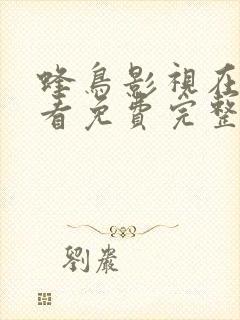 蜂鳥影視在
看免費完整
劉嚴